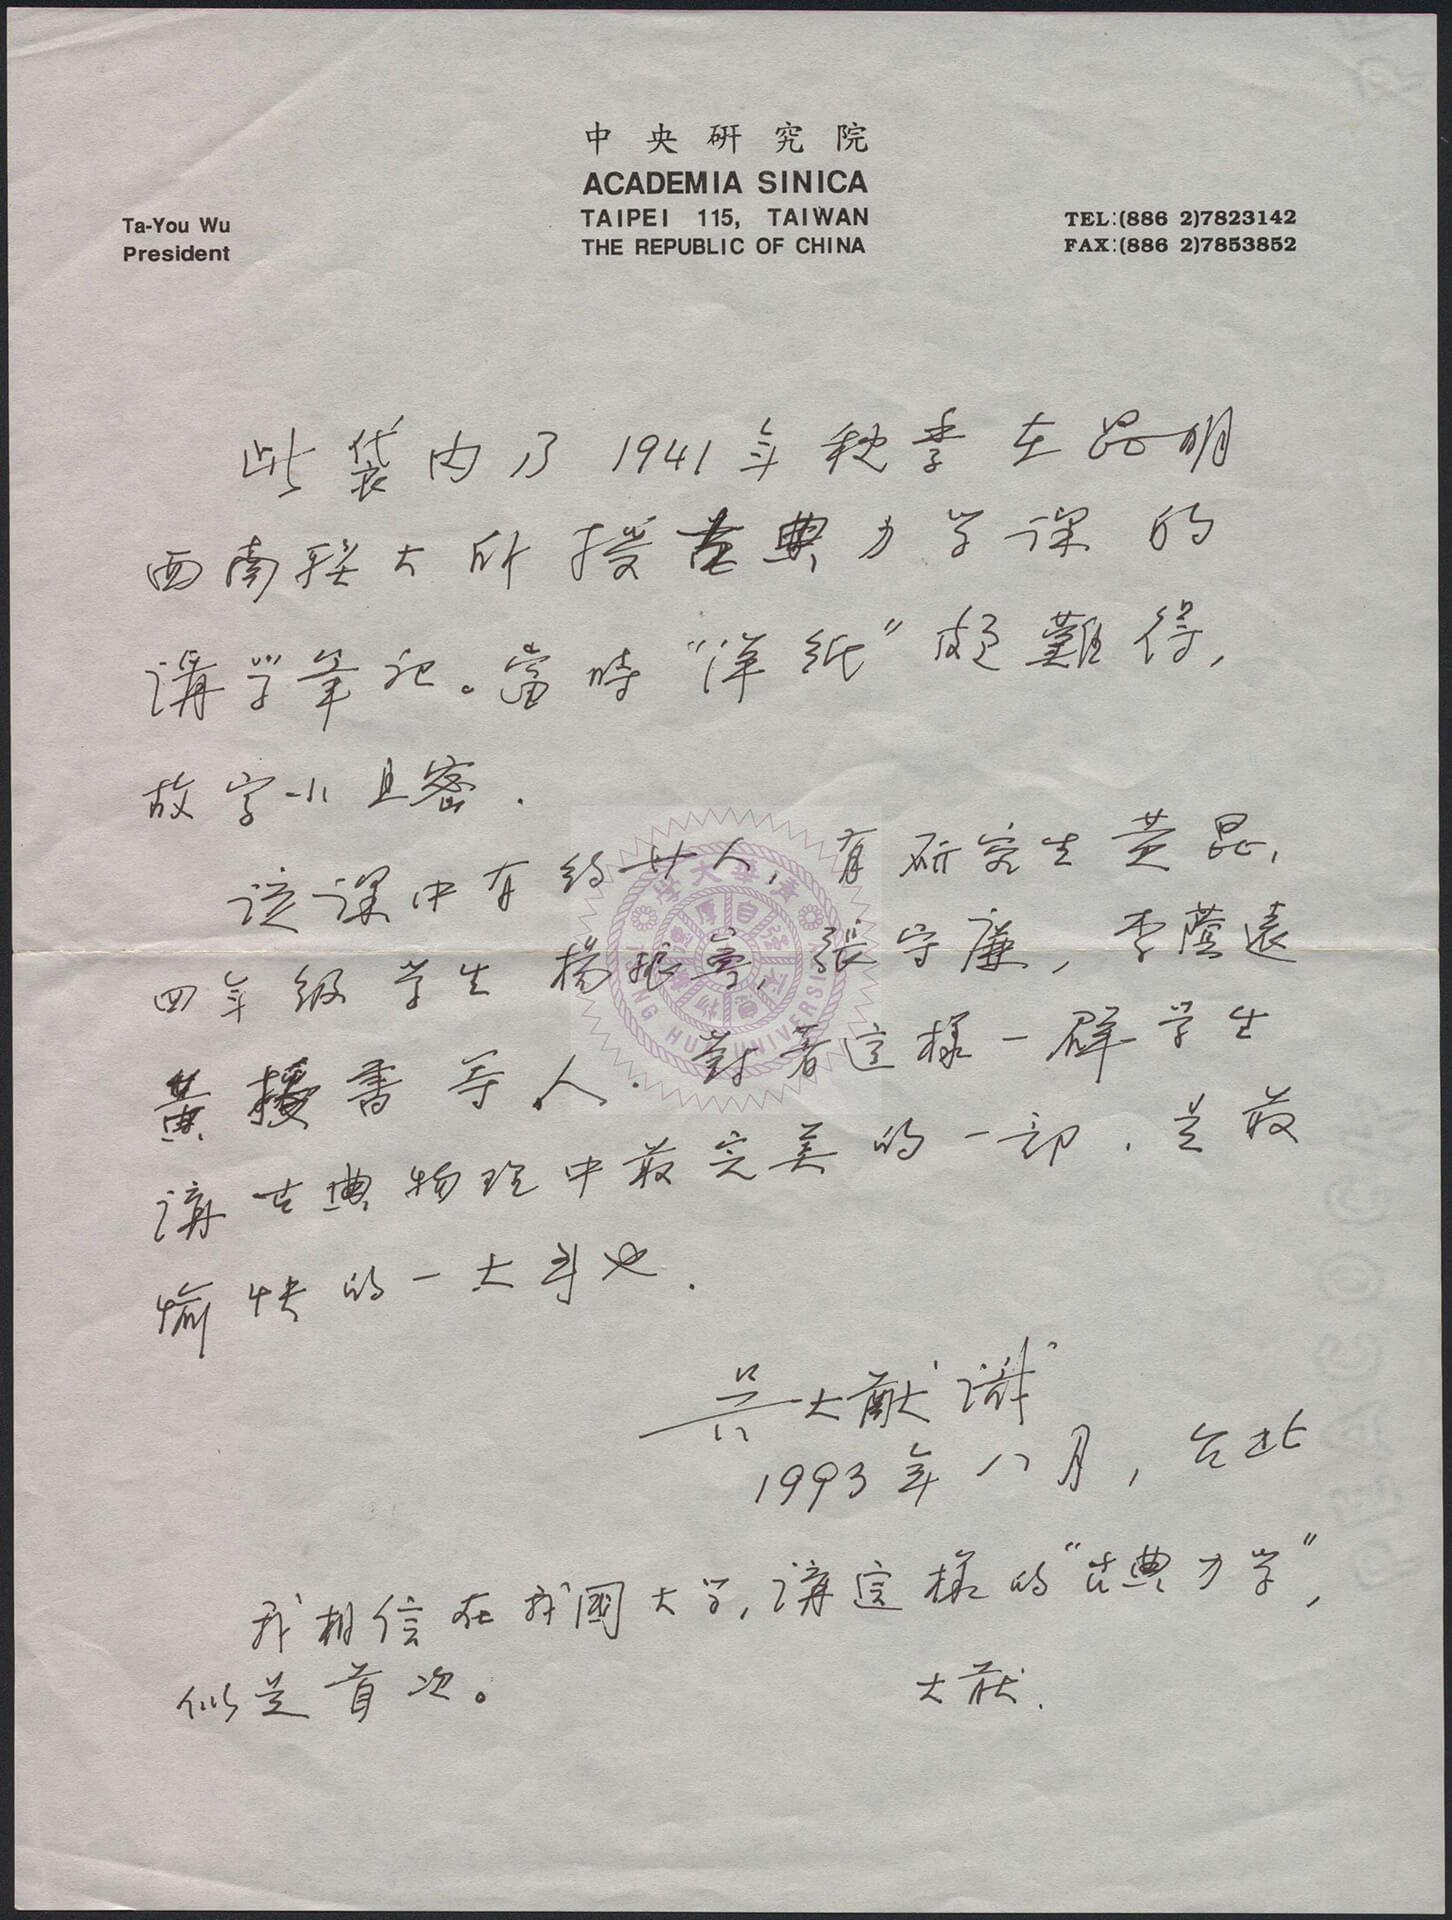 中央研究院
ACADEMIA SINICA
TAIPEI 115, TAIWAN
THE REPUBLIC OF CHINA
Ta-You Wu
President
TEL:(886 2)7823142
FAX:(886 2)7853852
此袋內乃1941年秋季在昆明
西南联大所授古典力学课的
講学笔记。當時"洋紙"頗難得,
故字小且密.
该课中有约廿人,有研究生黄昆,
四年级学生楊振寧,張守廉,李蔭遠
黄授書等人.對着這樣一群学生
講古典物理中最完美的一部.是最
愉快的一大事也.
吴大猷識
1993年八月,台北
我相信在我國大学,講這樣的"古典力学",
似是首次。
大猷.